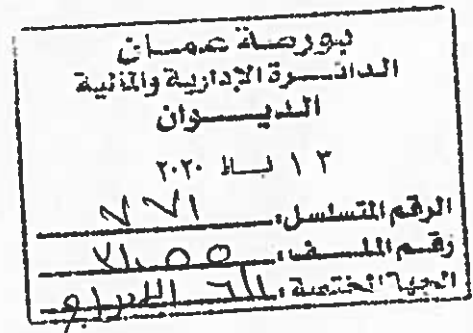 بورصة عمان
الدائرة الإدارية والمالية
الديوان
١٣ شباط ٢٠٢٠
الرقم المتسلسل: ٧٧١
رقم الملف:
الجهة المختصة: